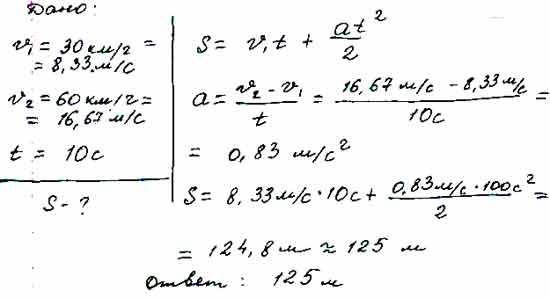 Дано:
v₁ = 30 км/г =
= 8,33 м/с
v₂ = 60 км/г =
= 16,67 м/с
t = 10 с
S - ?
S = v₁t + at²/2
a = (v₂ - v₁)/t = (16,67 м/с - 8,33 м/с)/10с =
= 0,83 м/с²
S = 8,33 м/с · 10с + (0,83 м/с · 100с²)/2 =
= 124,8 м ≈ 125 м
Ответ: 125 м